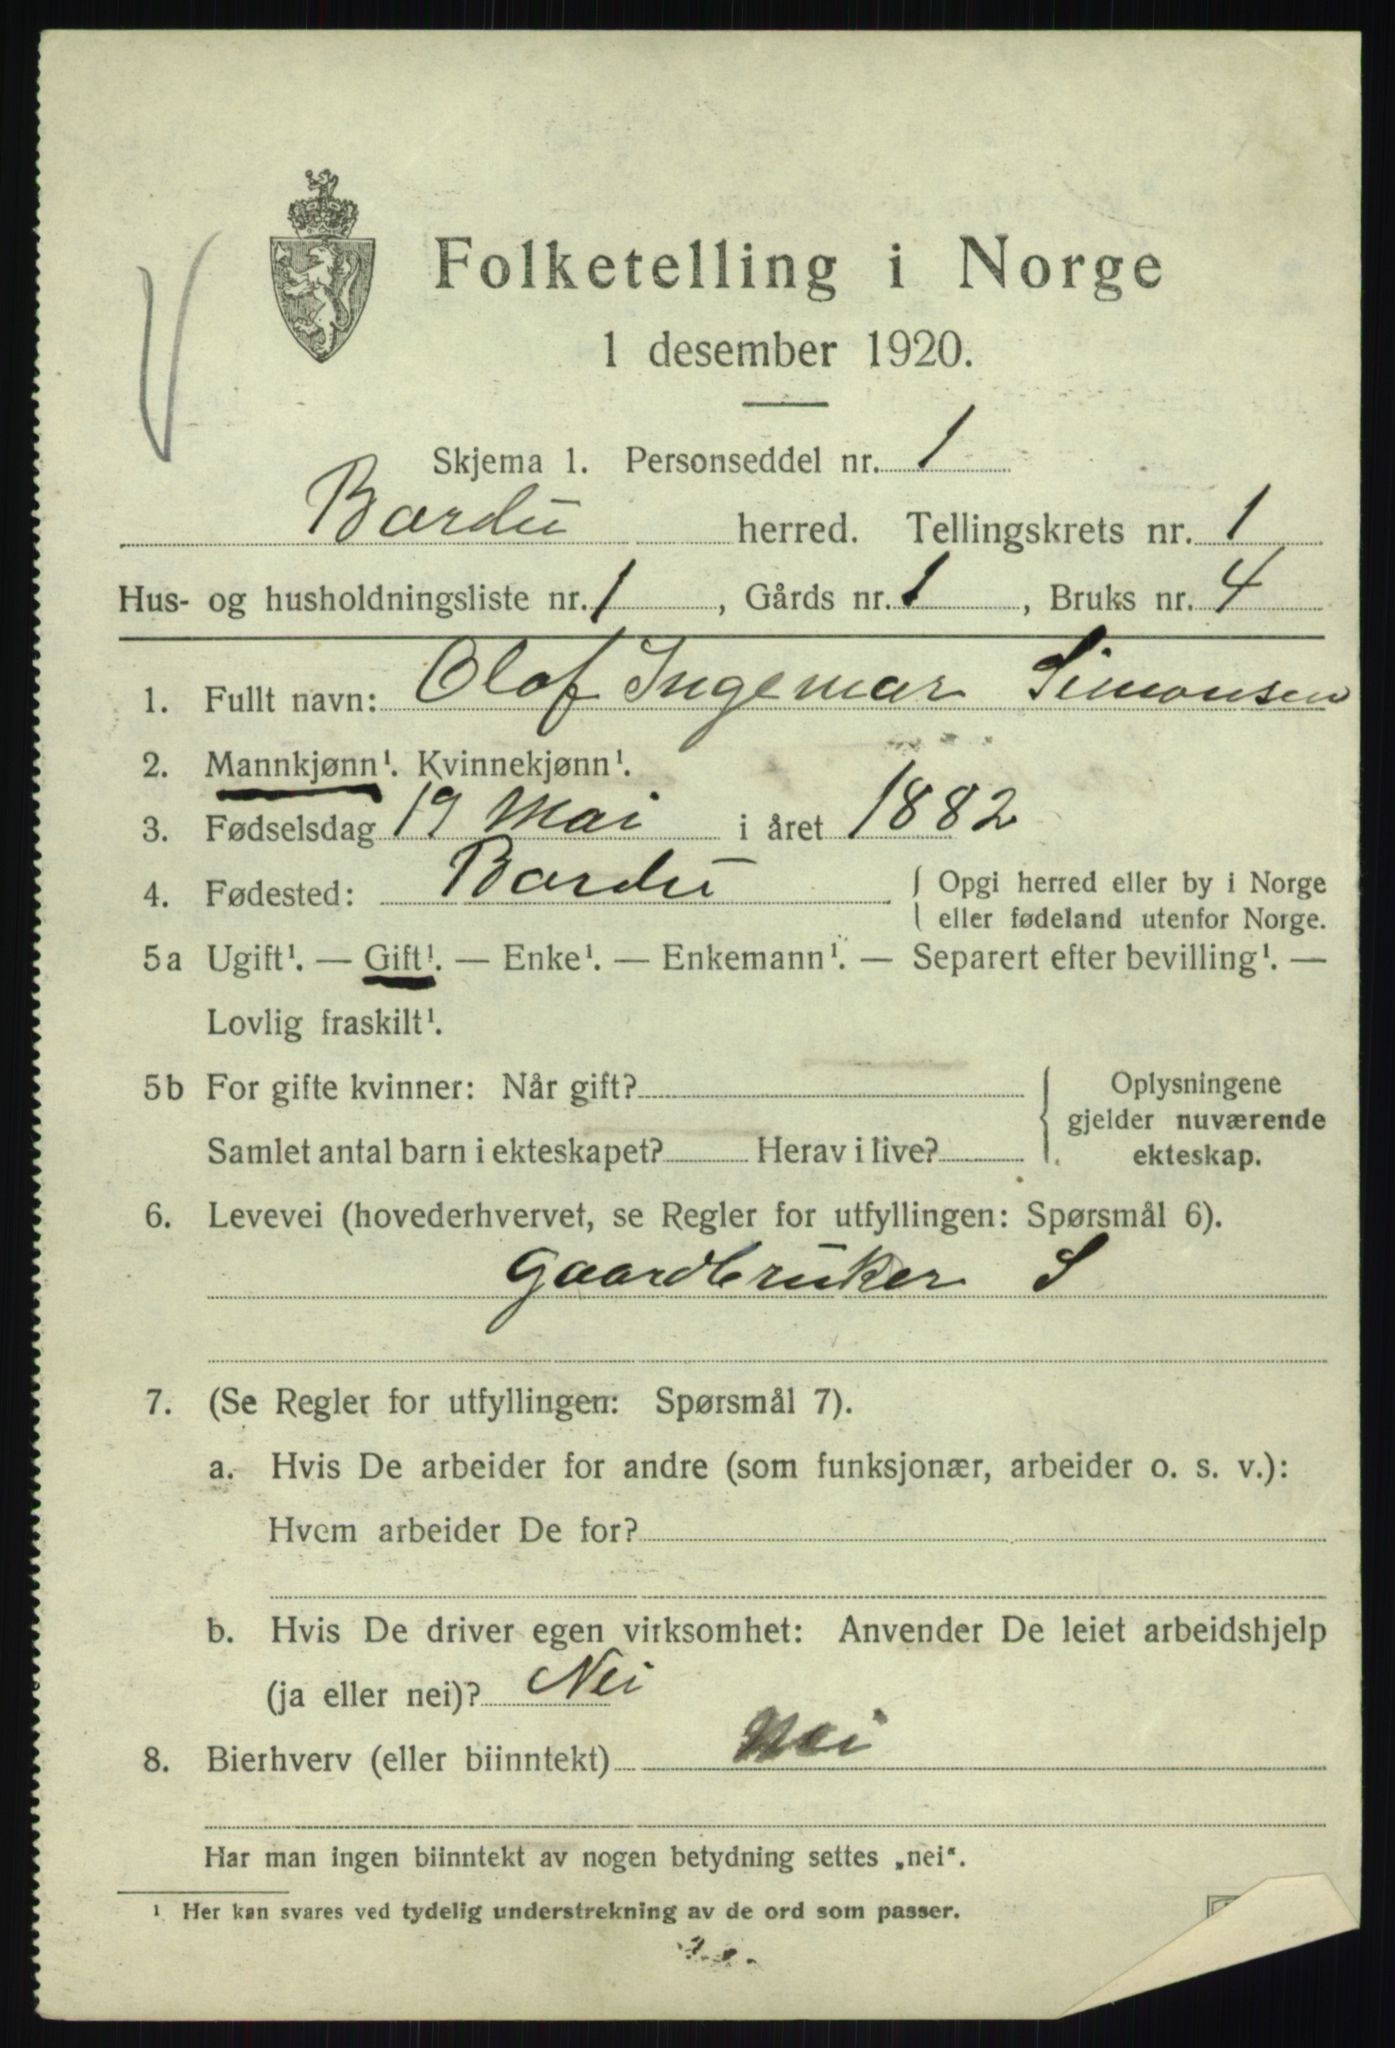 Folketelling i Norge
1 desember 1920.
Skjema 1. Personseddel nr. 1
Bardu herred. Tellingskrets nr. 1
Hus- og husholdningsliste nr. 1, Gårds nr. 1, Bruks nr. 4
1. Fullt navn: Olaf Ingemar Simonsen
2. Mannkjønn¹. Kvinnekjønn¹.
3. Fødselsdag 19 Mai i året 1882
4. Fødested: Bardu { Opgi herred eller by i Norge
eller fødeland utenfor Norge.
5a Ugift¹. — Gift¹. — Enke¹. — Enkemann¹. — Separert efter bevilling¹. —
Lovlig fraskilt¹.
5b For gifte kvinner: Når gift?
Samlet antal barn i ekteskapet? Herav i live?
Oplysningene
gjelder nuværende
ekteskap.
6. Levevei (hovederhvervet, se Regler for utfyllingen: Spørsmål 6).
Gaardbruker S
7. (Se Regler for utfyllingen: Spørsmål 7).
a. Hvis De arbeider for andre (som funksjonær, arbeider o. s. v.):
Hvem arbeider De for?
b. Hvis De driver egen virksomhet: Anvender De leiet arbeidshjelp
(ja eller nei)? Nei
8. Bierhverv (eller biinntekt) Nei
Har man ingen biinntekt av nogen betydning settes „nei“.
¹ Her kan svares ved tydelig understrekning av de ord som passer.